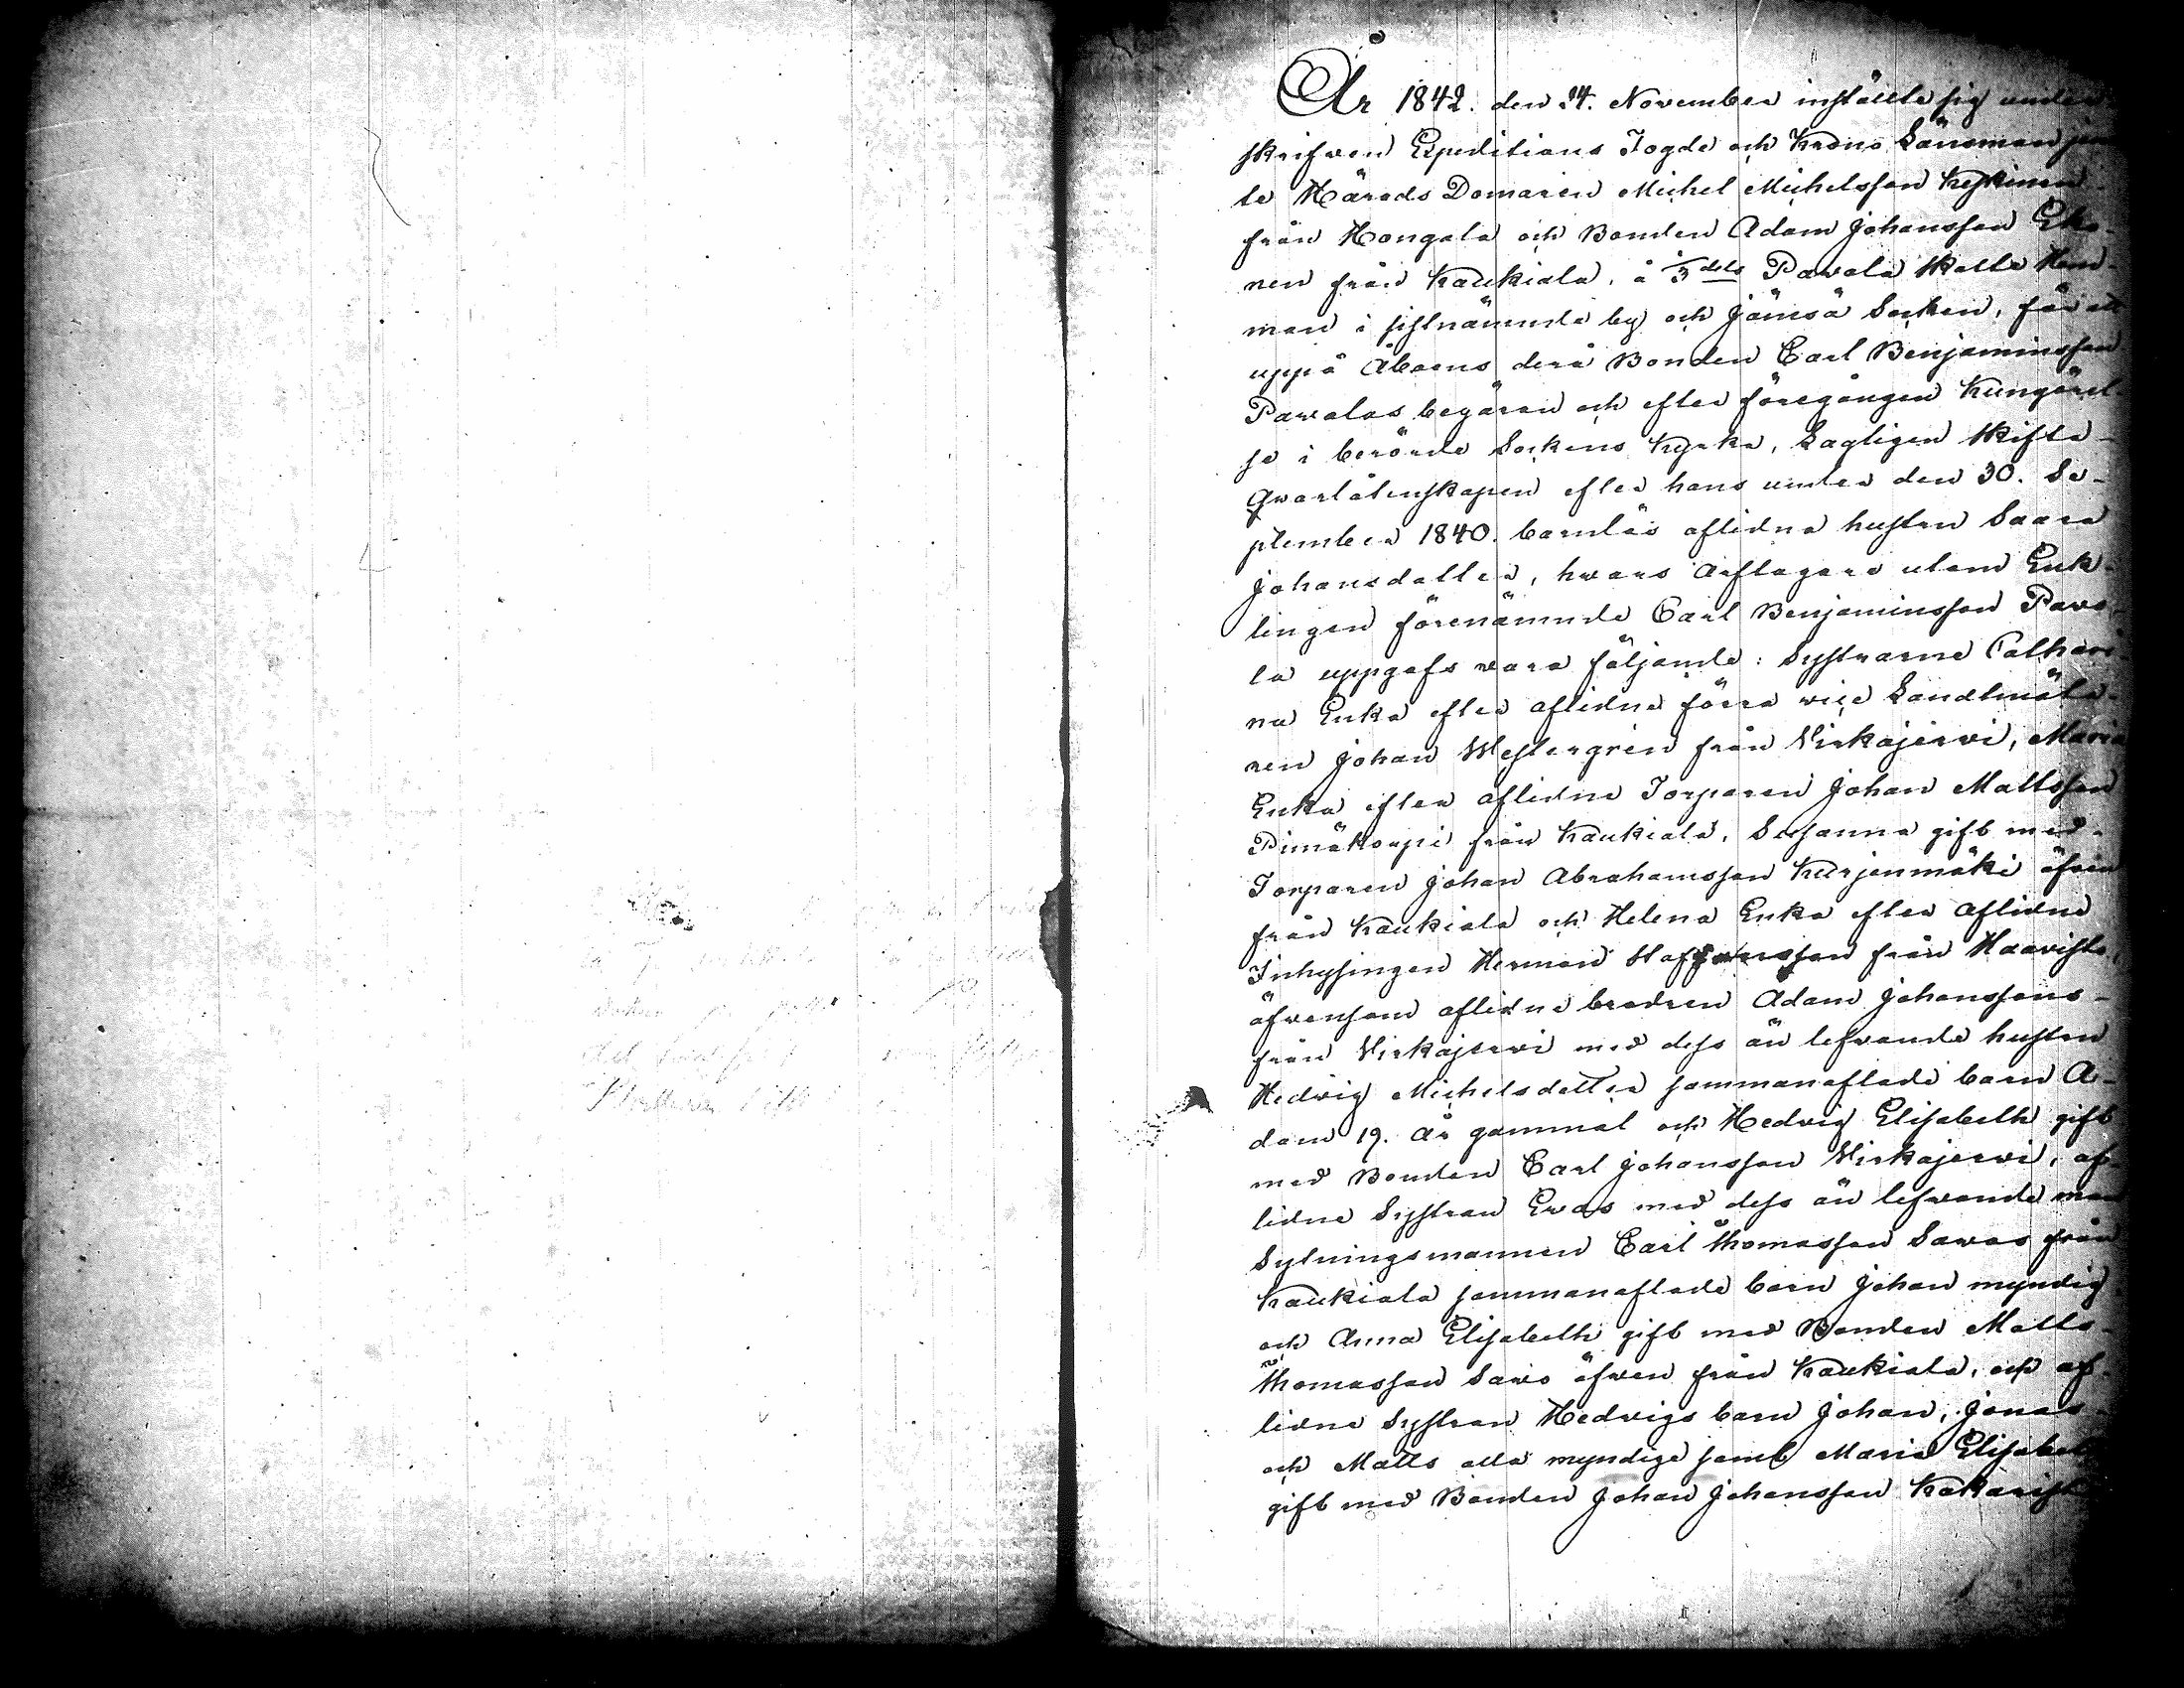 År 1842. den 24. November inställte sig under-
skrifven Expeditions Fogde och Krono Länsman jem
te Härads Domaren Michel Michelsson Keskinen
från Hongola och Bonden Adam Johansson Eko-
nen från Kaukiala, å 1/3 dels Pawola Skatte Hem-
man i sistnämnde by och Jämsä Socken, för att
uppå Åboens derå Bonden Carl Benjaminsson
Pawolas begäran och efter föregången Kungörel-
se i berörde Sockens Kyrka, Lagligen Skifta
Qvarlåtenskapen efter hans under den 30. Se-
ptember 1840. barnlös aflidna hustru Saara
Johansdotter, hwars Arftagare utom Enk-
lingen förenämnde Carl Benjaminsson Pawo-
la uppgafs wara följande: Systrarne Cathari-
na Enka efter aflidne förra vice Landtmäta-
ren Johan Westergren från Wirkajerwi, Maria
Enka efter aflidne Torparen Johan Mattsson
Pimäkorpi från Kaukiala, Susanna gift med
Torparen Johan Abrahamsson Kurjenmäki äfven
från Kaukiala och Helena Enka efter aflidne
Inhysingen Herman Staffansson från Haavisto,
äfvensom aflidne brodren Adam Johanssons
från Wirkajerwi med dess än lefwande hustru
Hedvig Michelsdotter sammanaflade barn A-
dam 19. år gammal och Hedvig Elisabeth gift
med Bonden Carl Johansson Wirkajerwi, af-
lidne Systran Ewas med dess än lefwande man
Sytningsmannen Carl Thomasson Sawos från
Kaukiala sammanaflade barn Johan myndig
och Anna Elisabeth gift med Bonden Matts
Thomasson Sawo äfwen från Kaukiala, och af-
lidne Systran Hedvigs barn Johan, Jonas
och Matts alla myndige samt Maria Elisabeth
gift med Bonden Johan Johansson